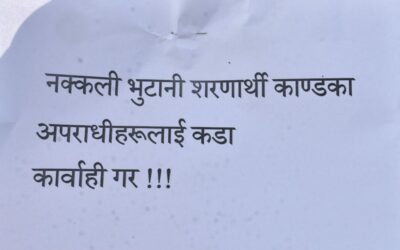 नक्कली भुटानी शरणार्थी काण्डका
अपराधीहरूलाई कडा
कार्वाही गर !!!